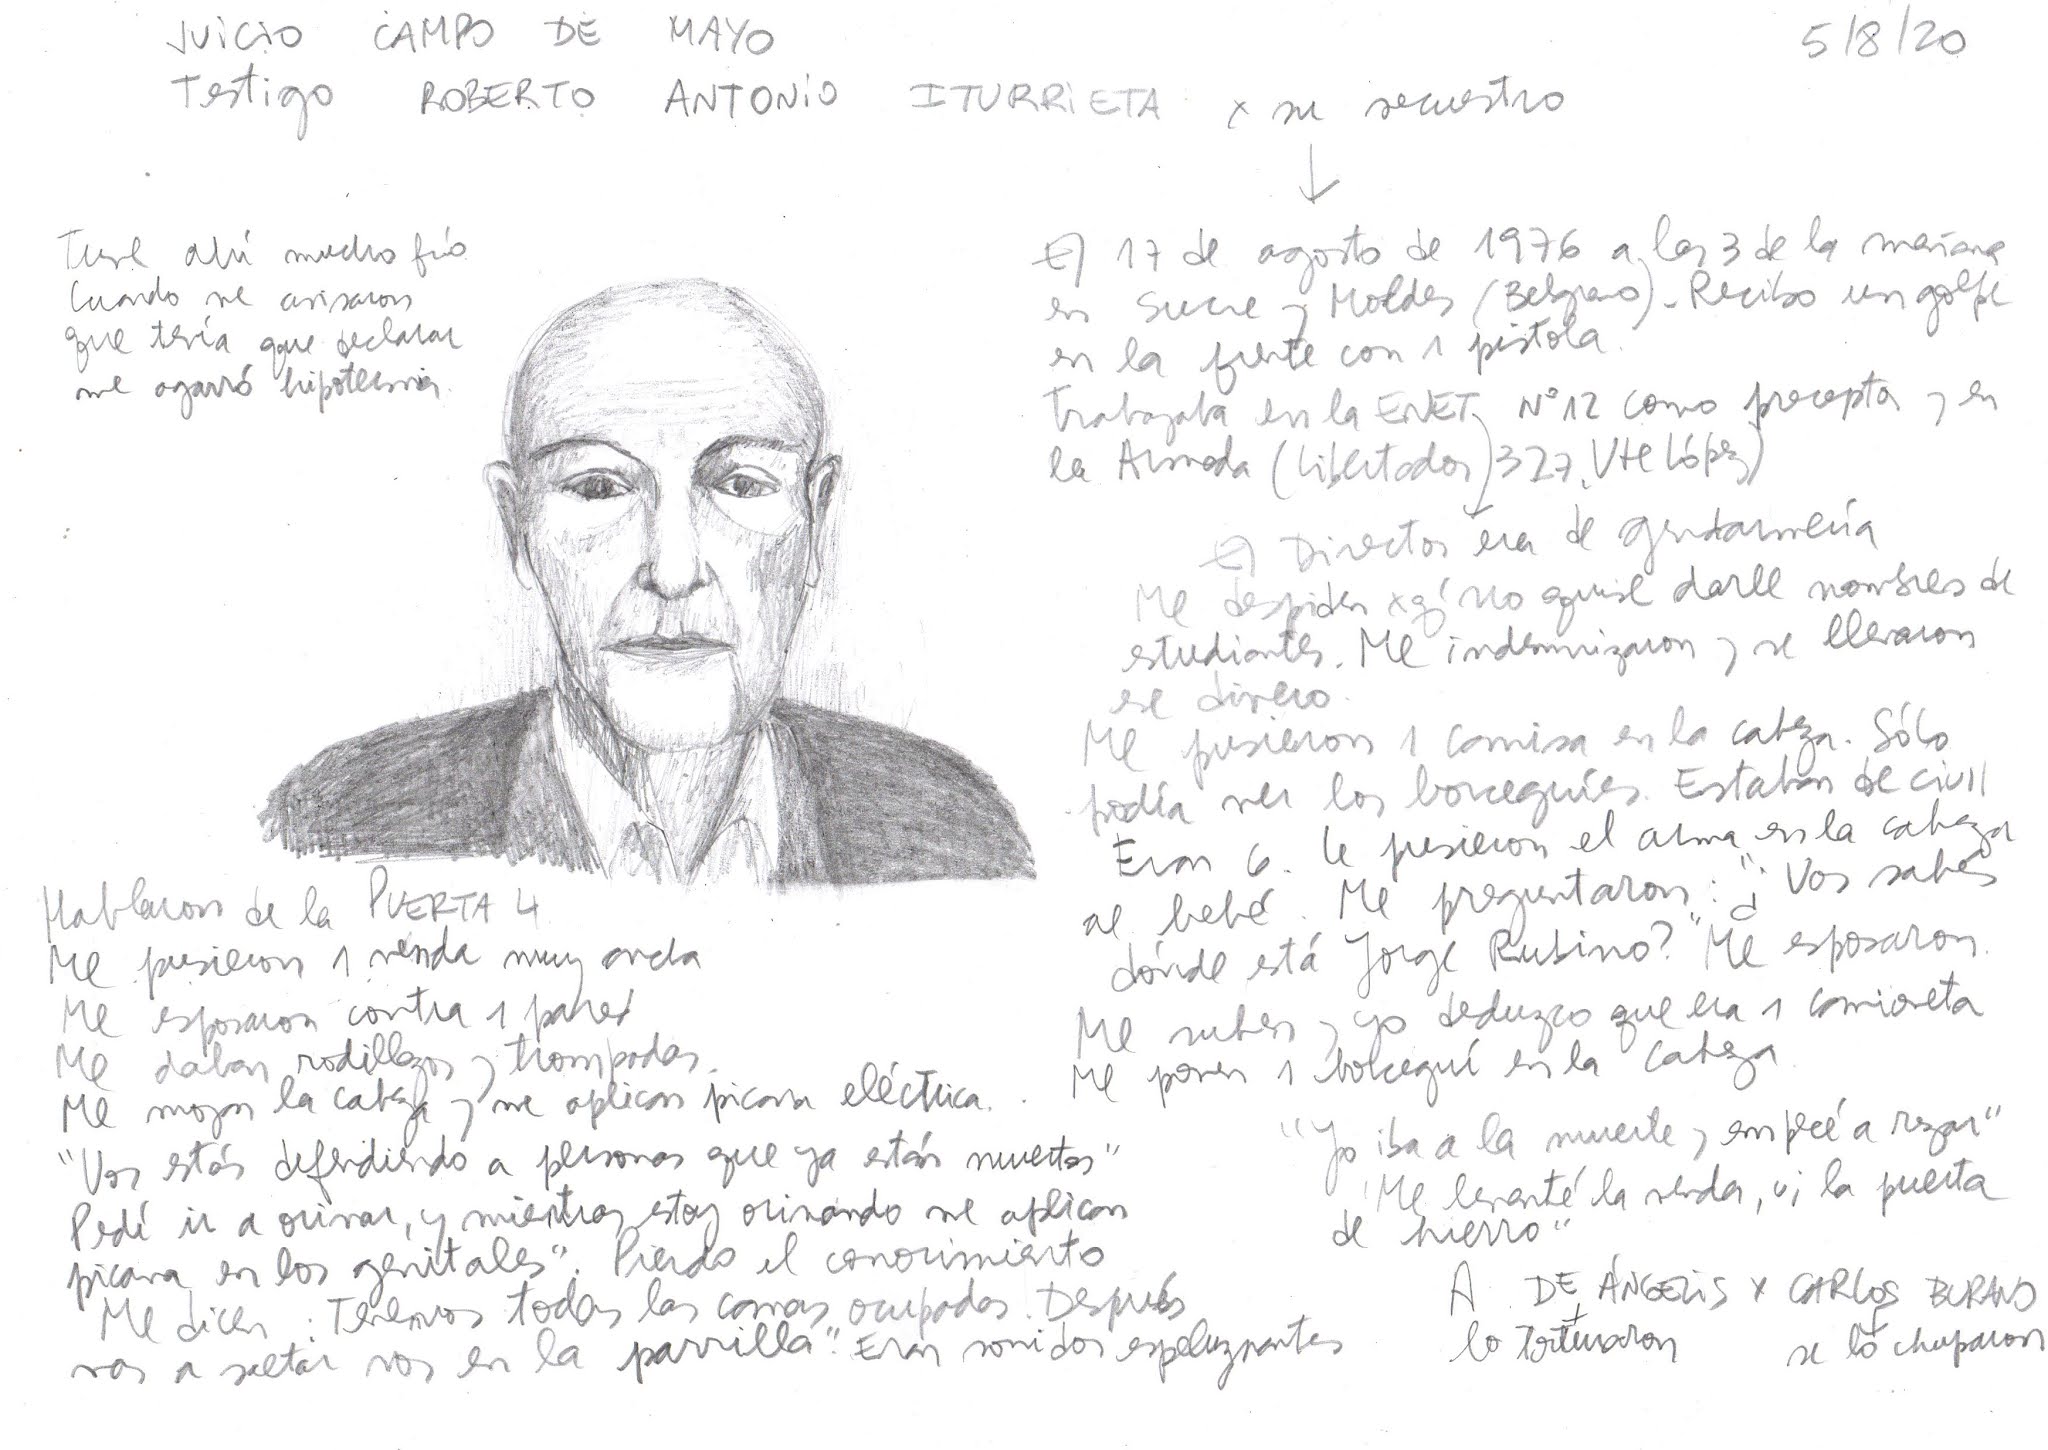 JUICIO CAMPO DE MAYO
5/8/20
Testigo ROBERTO ANTONIO ITURRIETA x su secuestro
Tuve ahí mucho frío
Cuando me avisaron
que tenía que declarar
me agarró hipotermia.
El 17 de agosto de 1976 a las 3 de la mañana
en Sucre y Moldes (Belgrano). Recibo un golpe
en la frente con 1 pistola.
Trabajaba en la ENET N°12 como preceptor y en
la Armada (Libertador 327, Vte López)
El Director era de gendarmería
Me despiden xq' no quise darle nombres de
estudiantes. Me indemnizaron y se llevaron
ese dinero.
Me pusieron 1 camisa en la cabeza. Sólo
podía ver los borceguíes. Estaban de civil
Eran 6. Le pusieron el arma en la cabeza
al bebé. Me preguntaron: "¿Vos sabés
dónde está Jorge Rubino?" Me esposaron.
Me suben y yo deduzco que era 1 camioneta
Me ponen 1 borceguí en la cabeza
"Yo iba a la muerte y empecé a rezar"
"Me levanté la venda, vi la puerta
de hierro"
A DE ÁNGELIS x CARLOS
lo torturaron se lo chuparon
Hablaron de la PUERTA 4
Me pusieron 1 venda muy ancha
Me esposaron contra 1 pared
Me daban rodillazos y trompadas.
Me mojan la cabeza y me aplican picana eléctrica.
"Vos estás defendiendo a personas que ya están muertas"
Pedí ir a orinar, y mientras estoy orinando me aplican
picana en los genitales". Pierdo el conocimiento
Me dicen: Tenemos todas las camas ocupadas. Después
vas a saltar vos en la parrilla". Eran sonidos espeluznantes